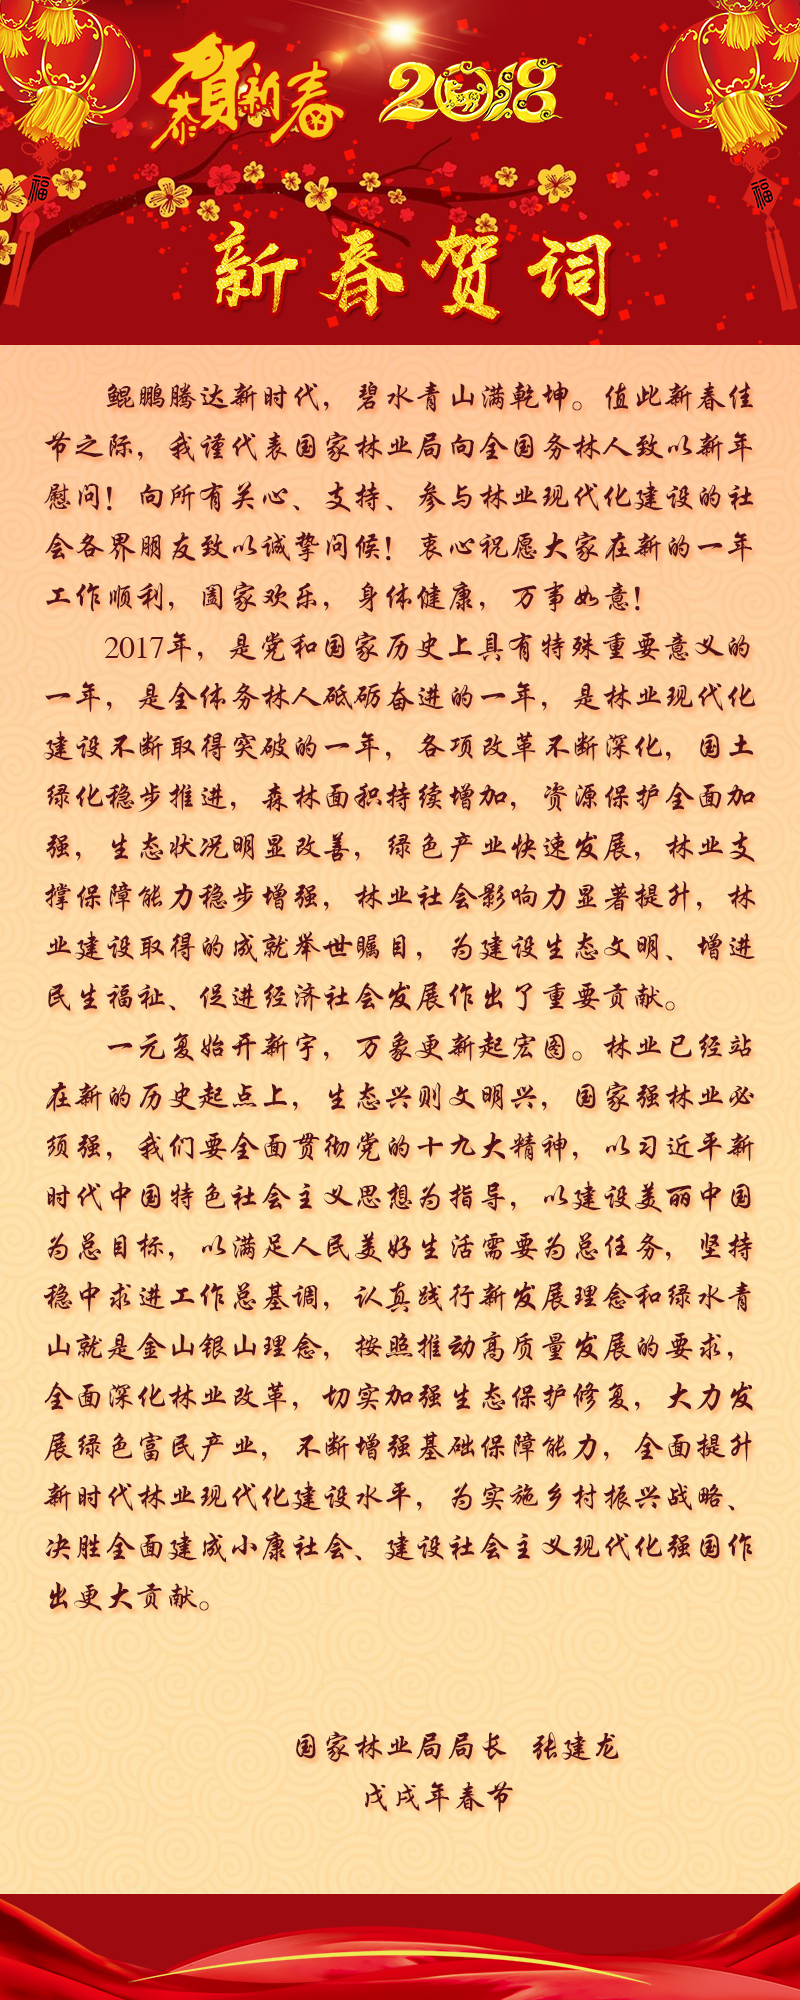 恭贺新春 2018
福
福
新春贺词
鲲鹏腾达新时代，碧水青山满乾坤。值此新春佳
节之际，我谨代表国家林业局向全国务林人致以新年
慰问！向所有关心、支持、参与林业现代化建设的社
会各界朋友致以诚挚问候！衷心祝愿大家在新的一年
工作顺利，阖家欢乐，身体健康，万事如意！
2017年，是党和国家历史上具有特殊重要意义的
一年，是全体务林人砥砺奋进的一年，是林业现代化
建设不断取得突破的一年，各项改革不断深化，国土
绿化稳步推进，森林面积持续增加，资源保护全面加
强，生态状况明显改善，绿色产业快速发展，林业支
撑保障能力稳步增强，林业社会影响力显著提升，林
业建设取得的成就举世瞩目，为建设生态文明、增进
民生福祉、促进经济社会发展作出了重要贡献。
一元复始开新宇，万象更新起宏图。林业已经站
在新的历史起点上，生态兴则文明兴，国家强林业必
须强，我们要全面贯彻党的十九大精神，以习近平新
时代中国特色社会主义思想为指导，以建设美丽中国
为总目标，以满足人民美好生活需要为总任务，坚持
稳中求进工作总基调，认真践行新发展理念和绿水青
山就是金山银山理念，按照推动高质量发展的要求，
全面深化林业改革，切实加强生态保护修复，大力发
展绿色富民产业，不断增强基础保障能力，全面提升
新时代林业现代化建设水平，为实施乡村振兴战略、
决胜全面建成小康社会、建设社会主义现代化强国作
出更大贡献。
国家林业局局长 张建龙
戊戌年春节